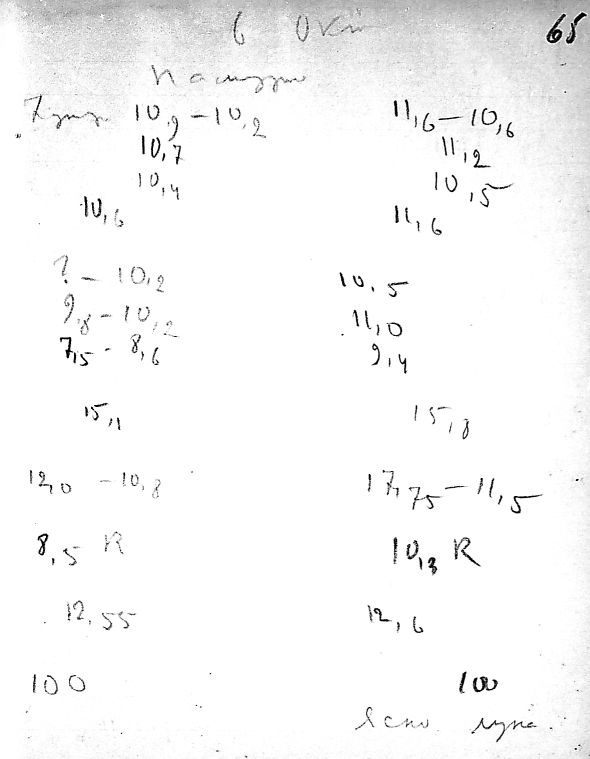 65
6 Окт
10,9 – 10,2 11,6 – 10,6
10,7 11,2
10,4 10,5
10,6 11,6
? – 10,2 10,5
9,8 – 10,2 11,0
7,5 - 8,6 9,4
15,1 15,8
12,0 – 10,8 17,75 – 11,5
8,5 R 10,3 R
12,55 12,6
100 100
Ясно луна.